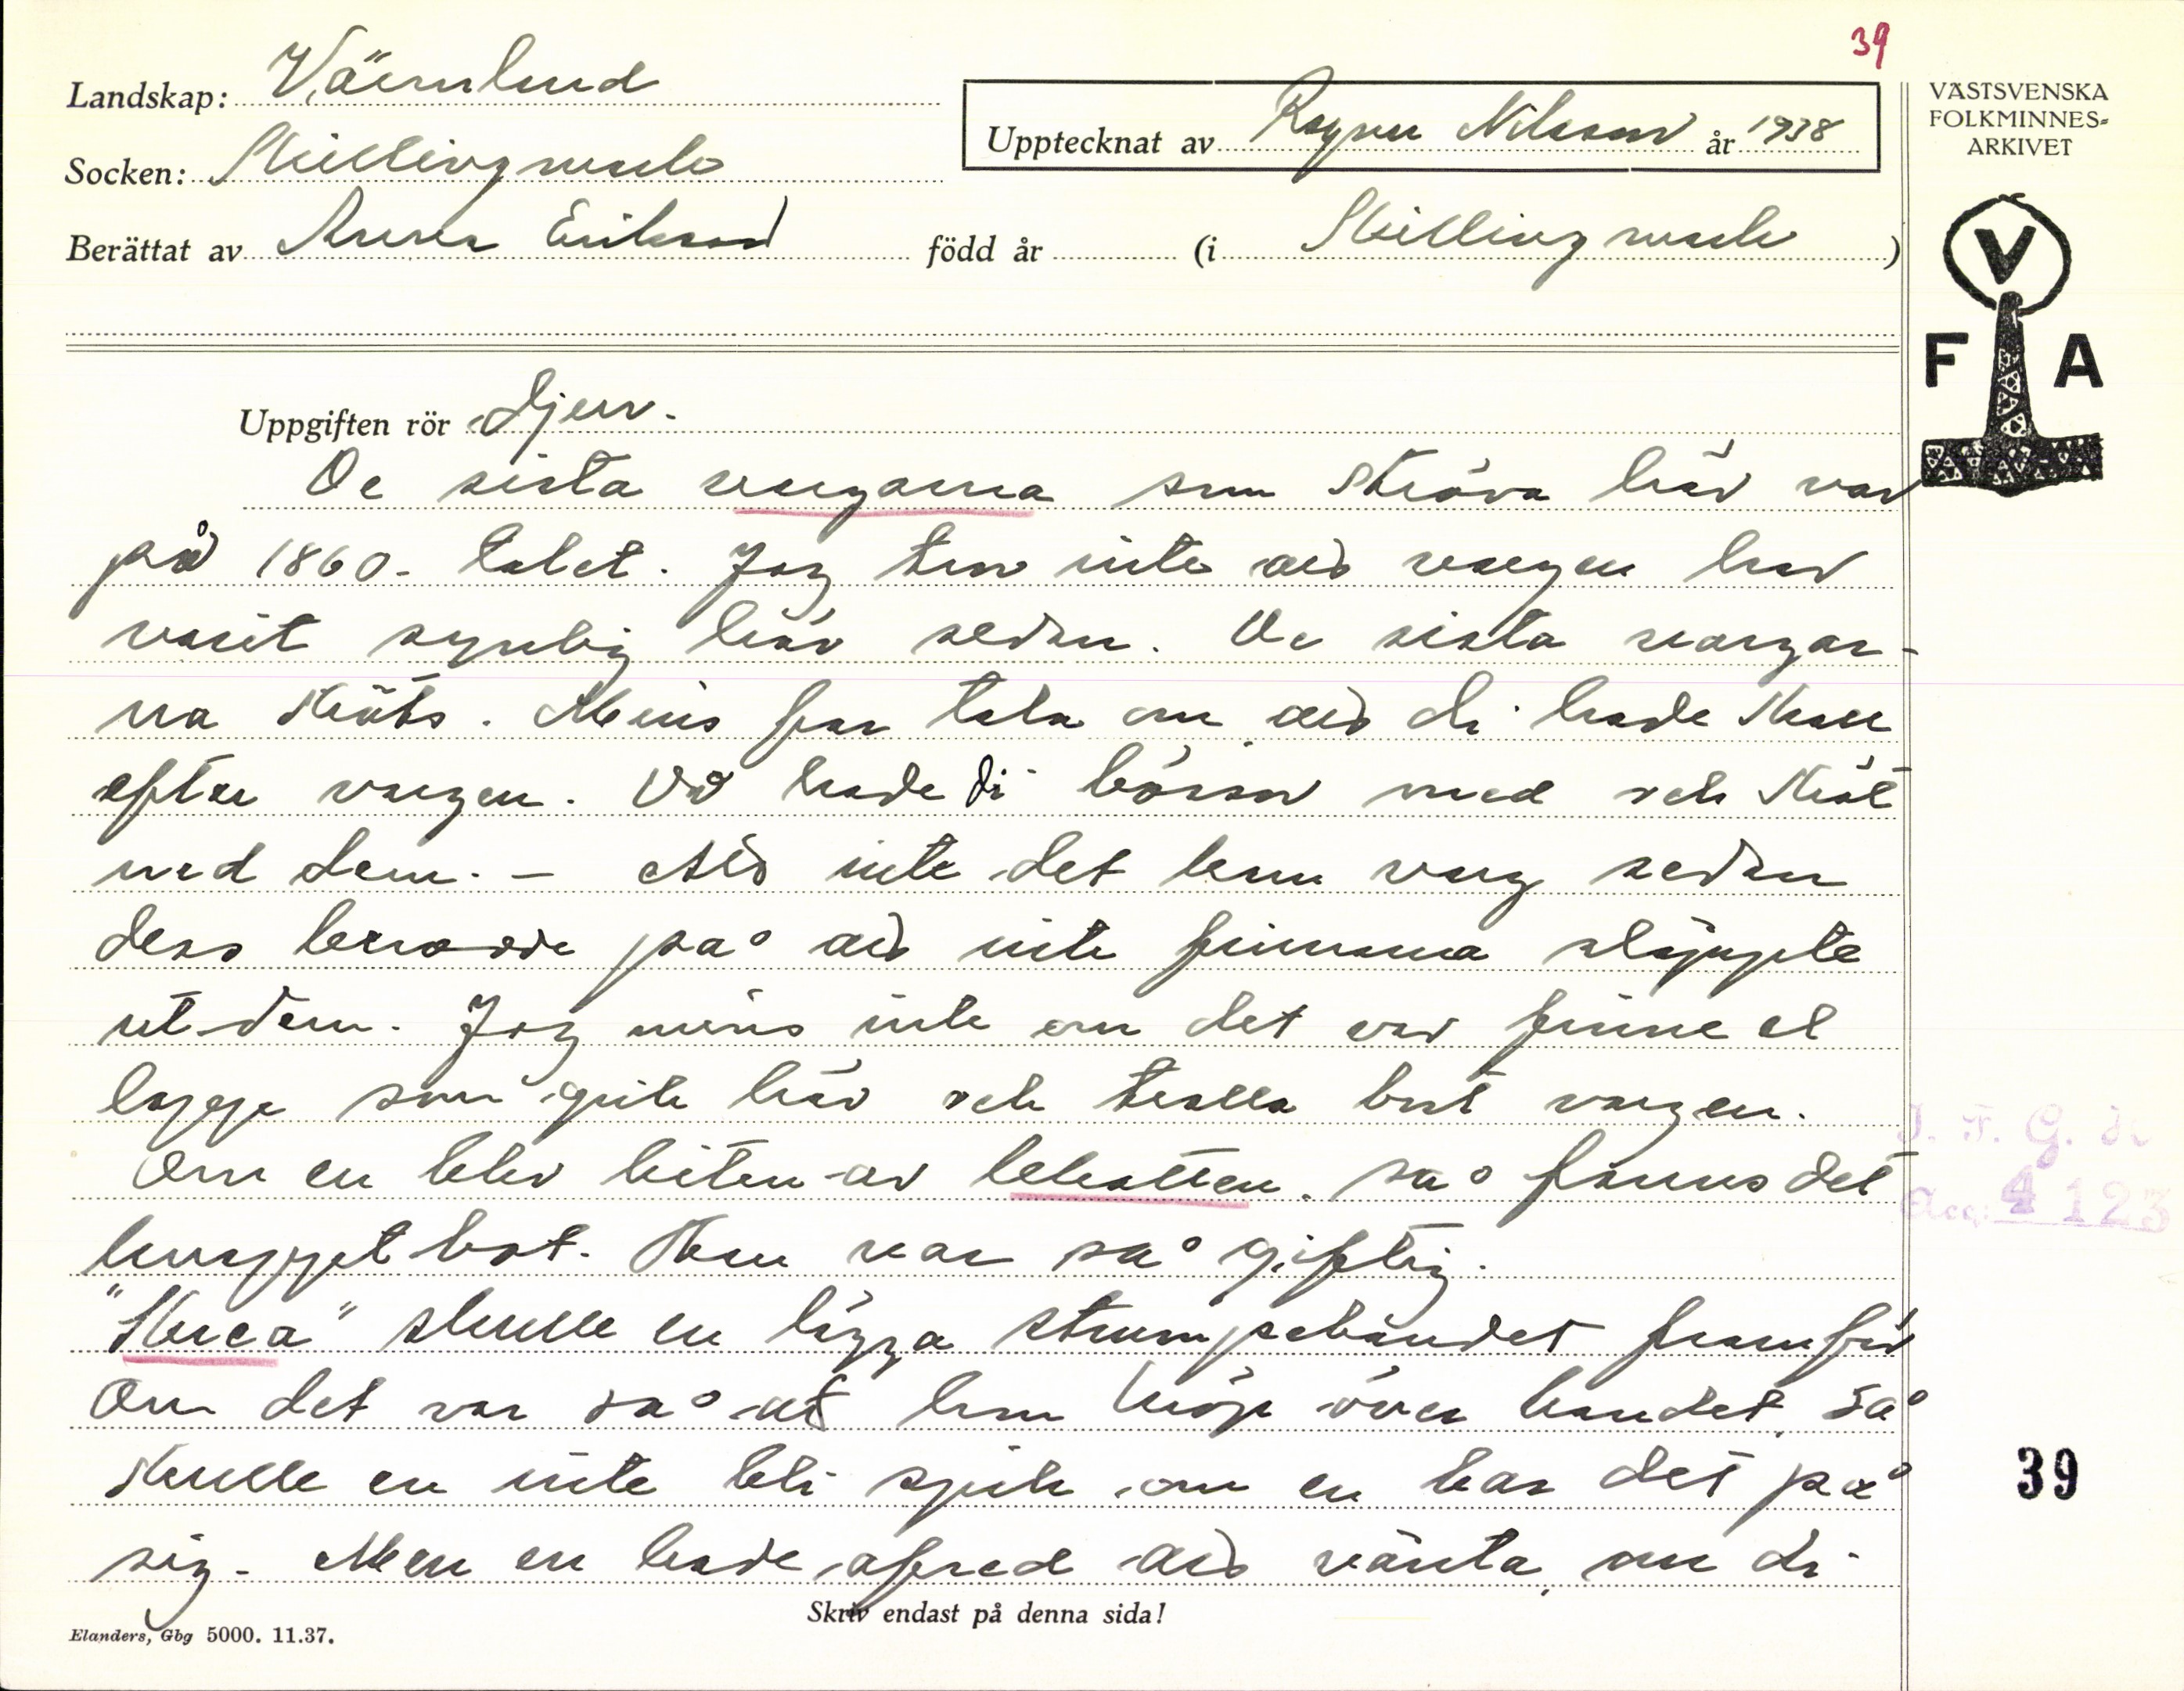 39
Landskap: Värmland
VÄSTSVENSKA
FOLKMINNES-
ARKIVET
Upptecknat av Ragnar Nilsson år 1938
Socken: Skillingmark
Berättat av Anna Erikson född år (i Skillingmark)
V
F A
Uppgiften rör Djur.
De sista vargarna som ströva här var
på 1860-talet. Jag tror inte att vargen har
varit synlig här sedan. De sista vargar-
na sköts. Minns far tala om att di hade skall
efter vargen. Då hade di bössor med och sköt
ned dem. - Att inte det kom varg sedan
dess berodde på att inte finnarna släppte
ut dem. Jag minns inte om det var finne el
lappe som gick här och trolla bort vargen.
Om en blev biten av lekatten så fanns det
knappt bot. Hon var så giftig.
"Skuca" skulle en lägga strumpebandet framför
Om det var så att hon kröp över bandet så
skulle en inte bli sjuk om en har det på
sig. Men en hade ofred att vänta om di
J. F. G. 
Acc: 4123
39
Skriv endast på denna sida!
Elanders, Gbg 5000. 11.37.